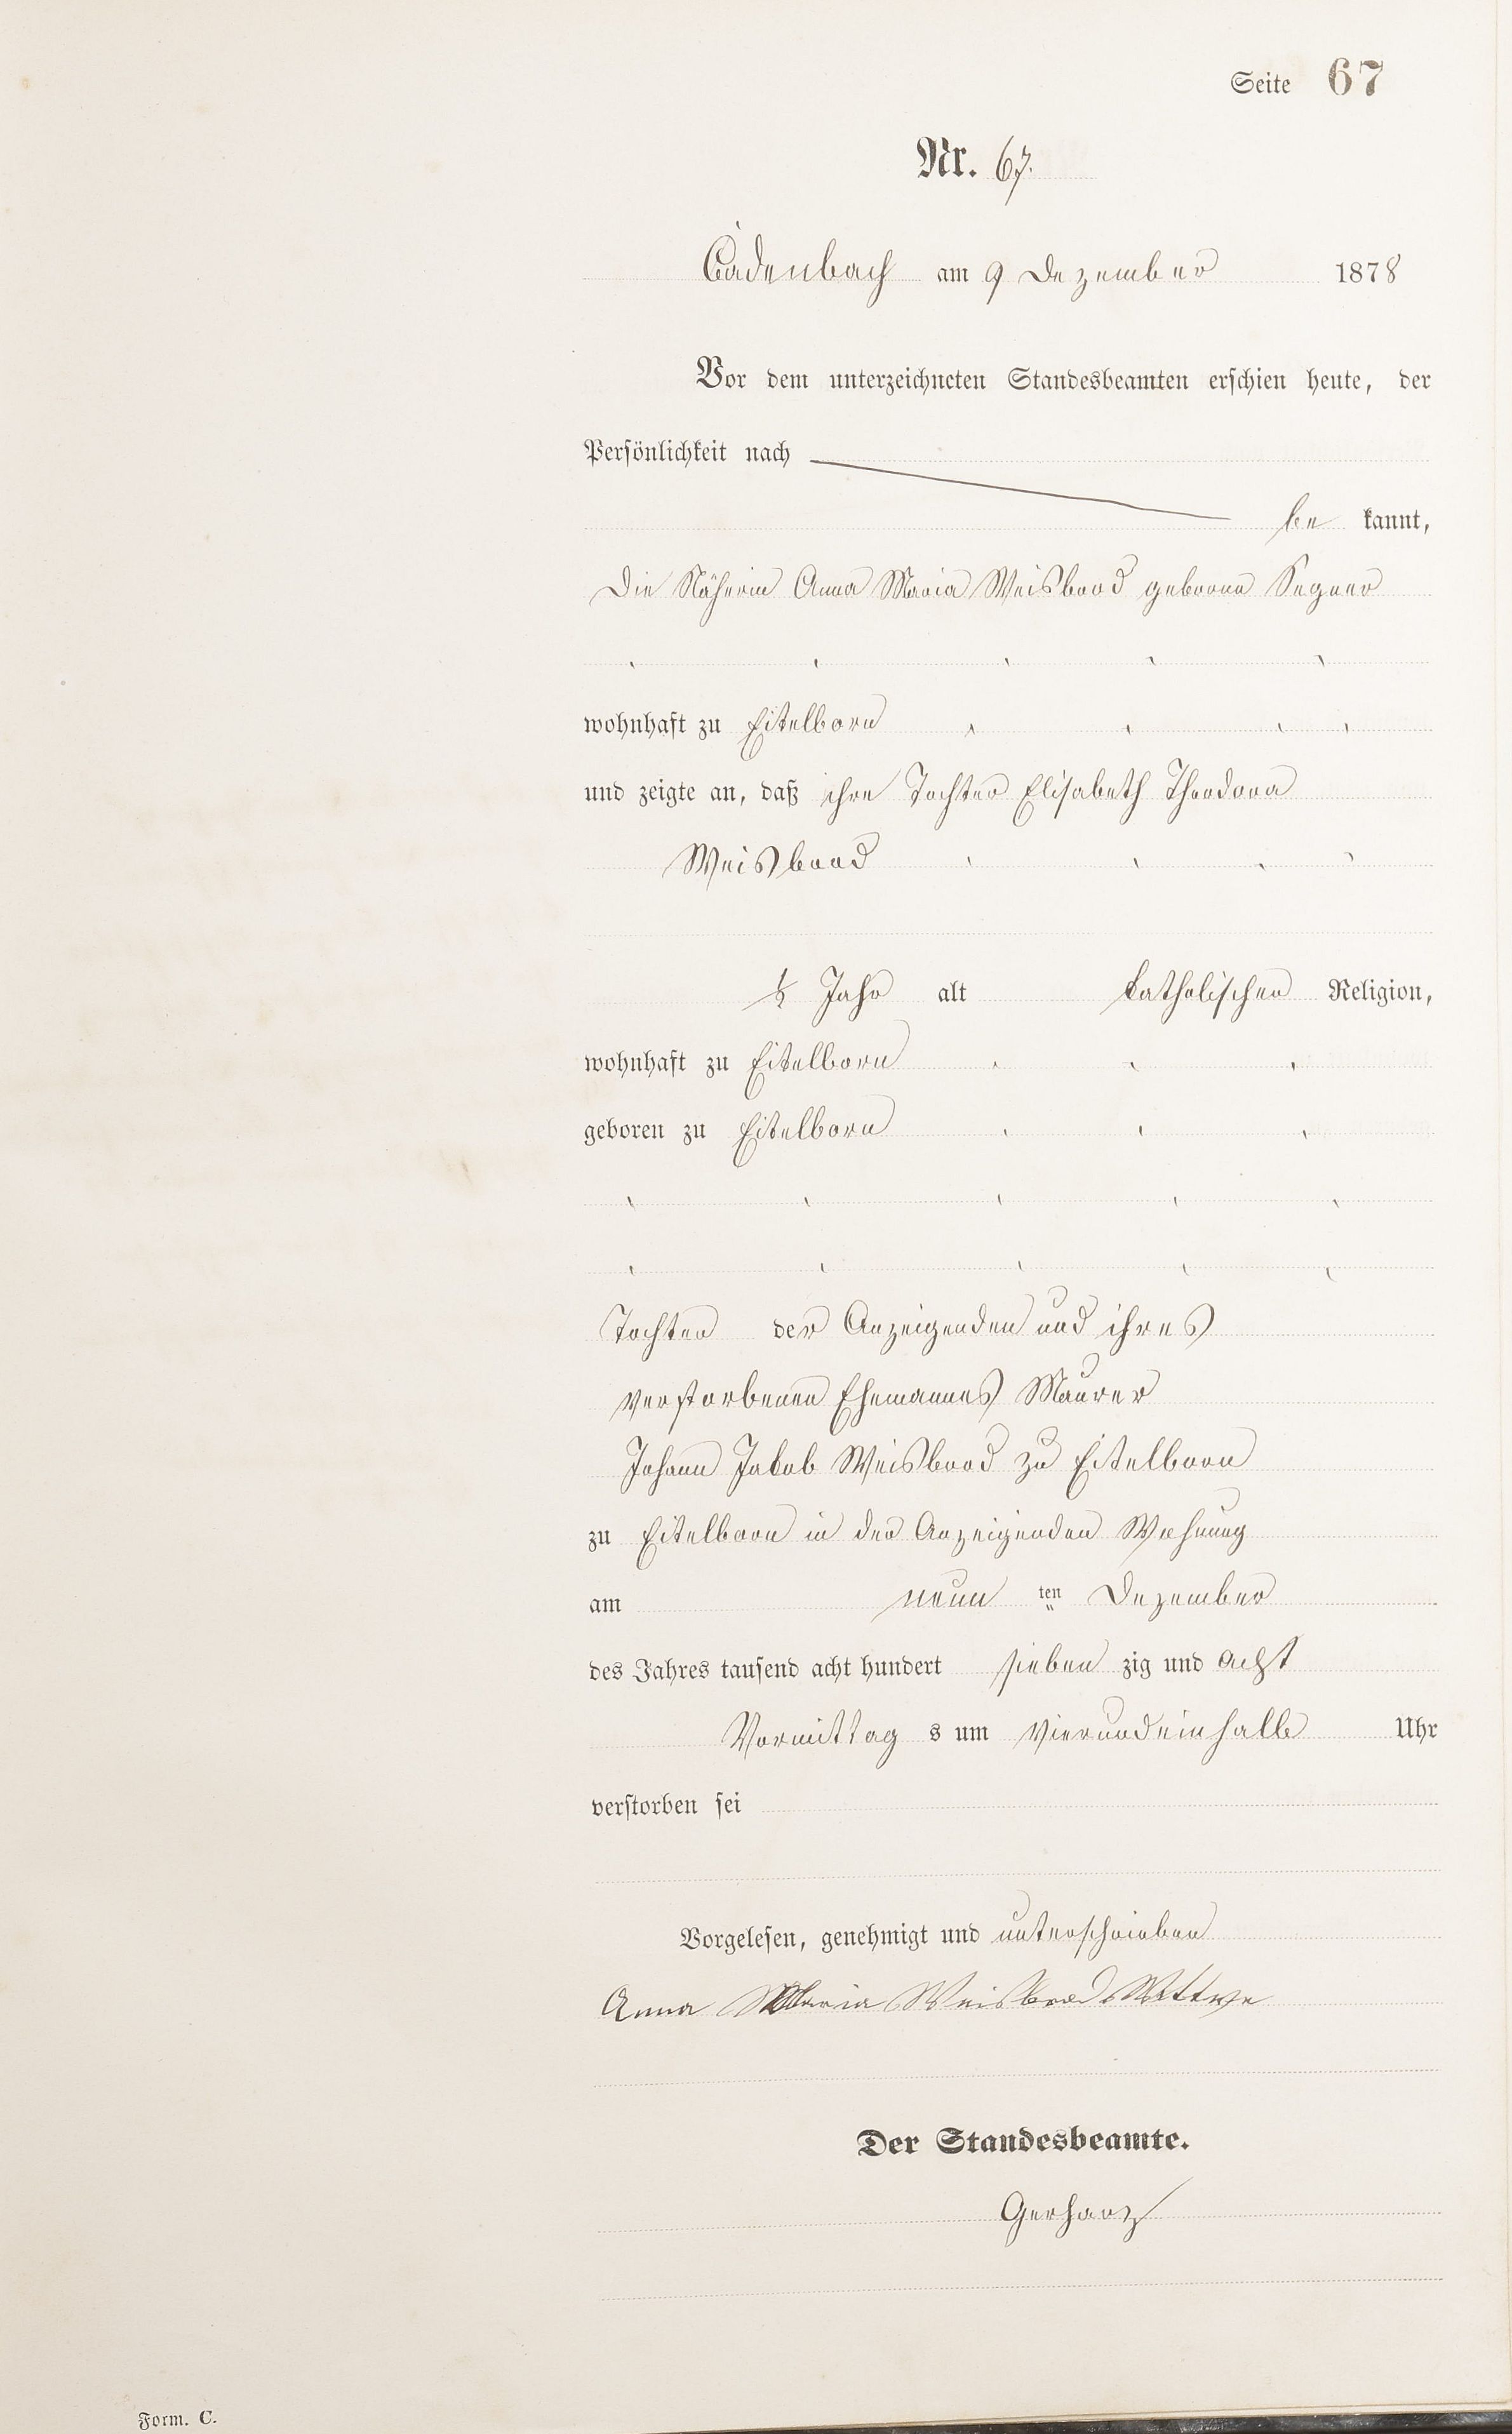 Seite 67
Nr. 67.
Cadenbach am 9 Dezember 1878
Vor dem unterzeichneten Standesbeamten erschien heute, der
Persönlichkeit nach
be kannt,
Die Näherin Anna Maria Weisbrod geborne Segner
wohnhaft zu Eitelborn
und zeigte an, daß ihre Tochter Elisabeth Theodora
Weisbrod
½ Jahr alt katholischer Religion,
wohnhaft zu Eitelborn
geboren zu Eitelborn
Tochter der Anzeigenden und ihres
verstorbenen Ehemannes Maurer
Johann Jakob Weisbrod zu Eitelborn
zu Eitelborn in der Anzeigenden Wohnung
am neun ten Dezember
des Jahres tausend acht hundert sieben zig und acht
Vormittag s um vierundeinhalb Uhr
verstorben sei
Vorgelesen, genehmigt und unterschrieben
Anna Maria Weisbrod Wittwe
Der Standesbeamte.
Gerharz
Form. C.